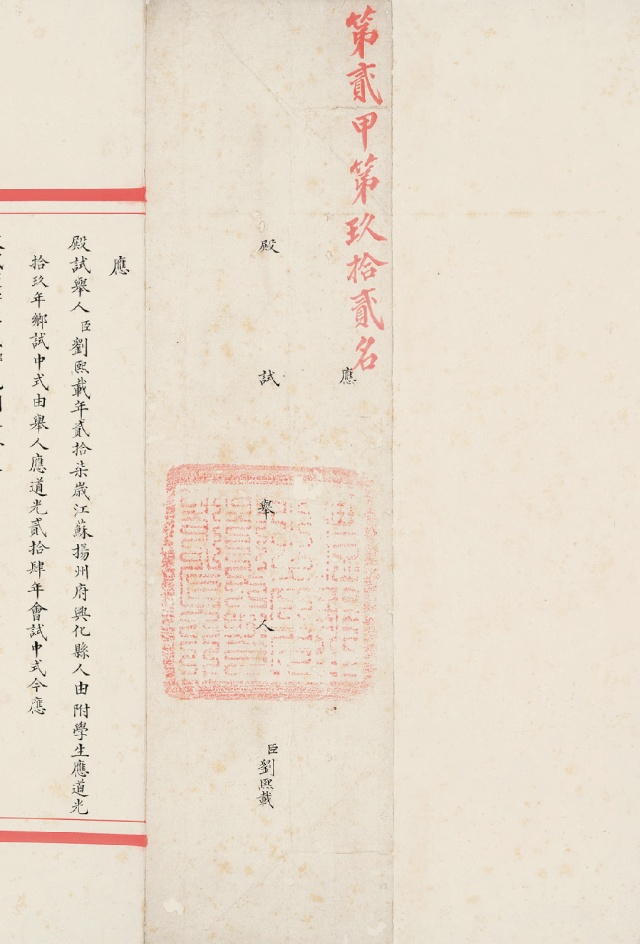 第貳甲第玖拾貳名
應
殿試舉人
臣劉熙載
應
殿試舉人臣劉熙載年貳拾柒歲江蘇揚州府興化縣人由附學生應道光
拾玖年鄉試中式由舉人應道光貳拾肆年會試中式今應